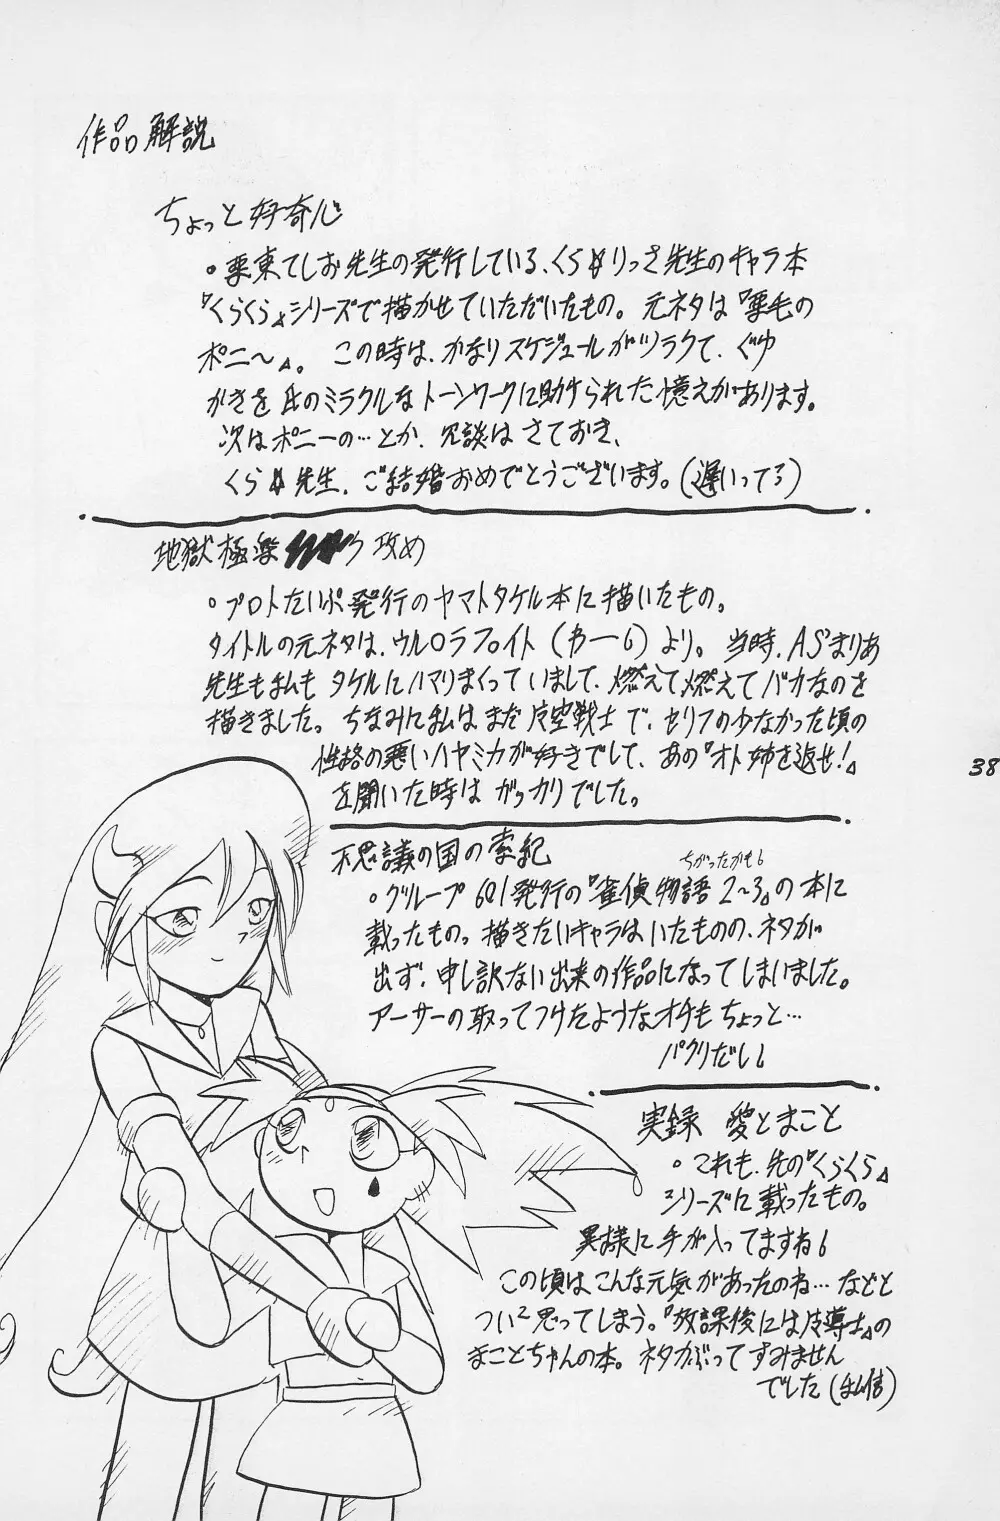 作品解説
ちょっと好奇心
。栗東てしお先生の発行している、くら☆りっさ先生のキャラ本
『くらくら』シリーズで描かせていただいたもの。元ネタは『栗毛の
ポニ〜』。この時は、かなりスケジュールがツラクて、ぐゆ
がきを氏のミラクルなトーンワークに助けられた憶えがあります。
次はポニーの…とか、冗談はさておき、
くら☆先生、ご結婚おめでとうございます。(遅いってろ)
地獄極楽 攻め
。プロトたいぷ発行のヤマトタケル本に描いたもの。
タイトルの元ネタは、ウル○ラファイト(カー6)より。当時、AS'まりあ
先生も私もタケルにハマりまくっていまして、燃えて燃えてバカなのを
描きました。ちなみに私はまだ 空戦士で、セリフの少なかった頃の
性格の悪いハヤミカが好きでして、あの『オト姉を返せ!』
を聞いた時はガッカリでした。
38
不思議の国の索紀
ちがったかも。
。グループ601発行の『雀偵物語2〜3』の本に
載ったもの。描きたいキャラはいたものの、ネタが
出ず、申し訳ない出来の作品になってしまいました。
アーサーの取ってつけたようなオチもちょっと…
パクリだし。
実録 愛とまこと
。これも、先の『くらくら』
シリーズに載ったもの。
異様に手が入ってますね。
この頃はこんな元気があったのね…などと
つい2思ってしまう。『放課後には 導士』の
まことちゃんの本。ネタかぶってすみません
でした